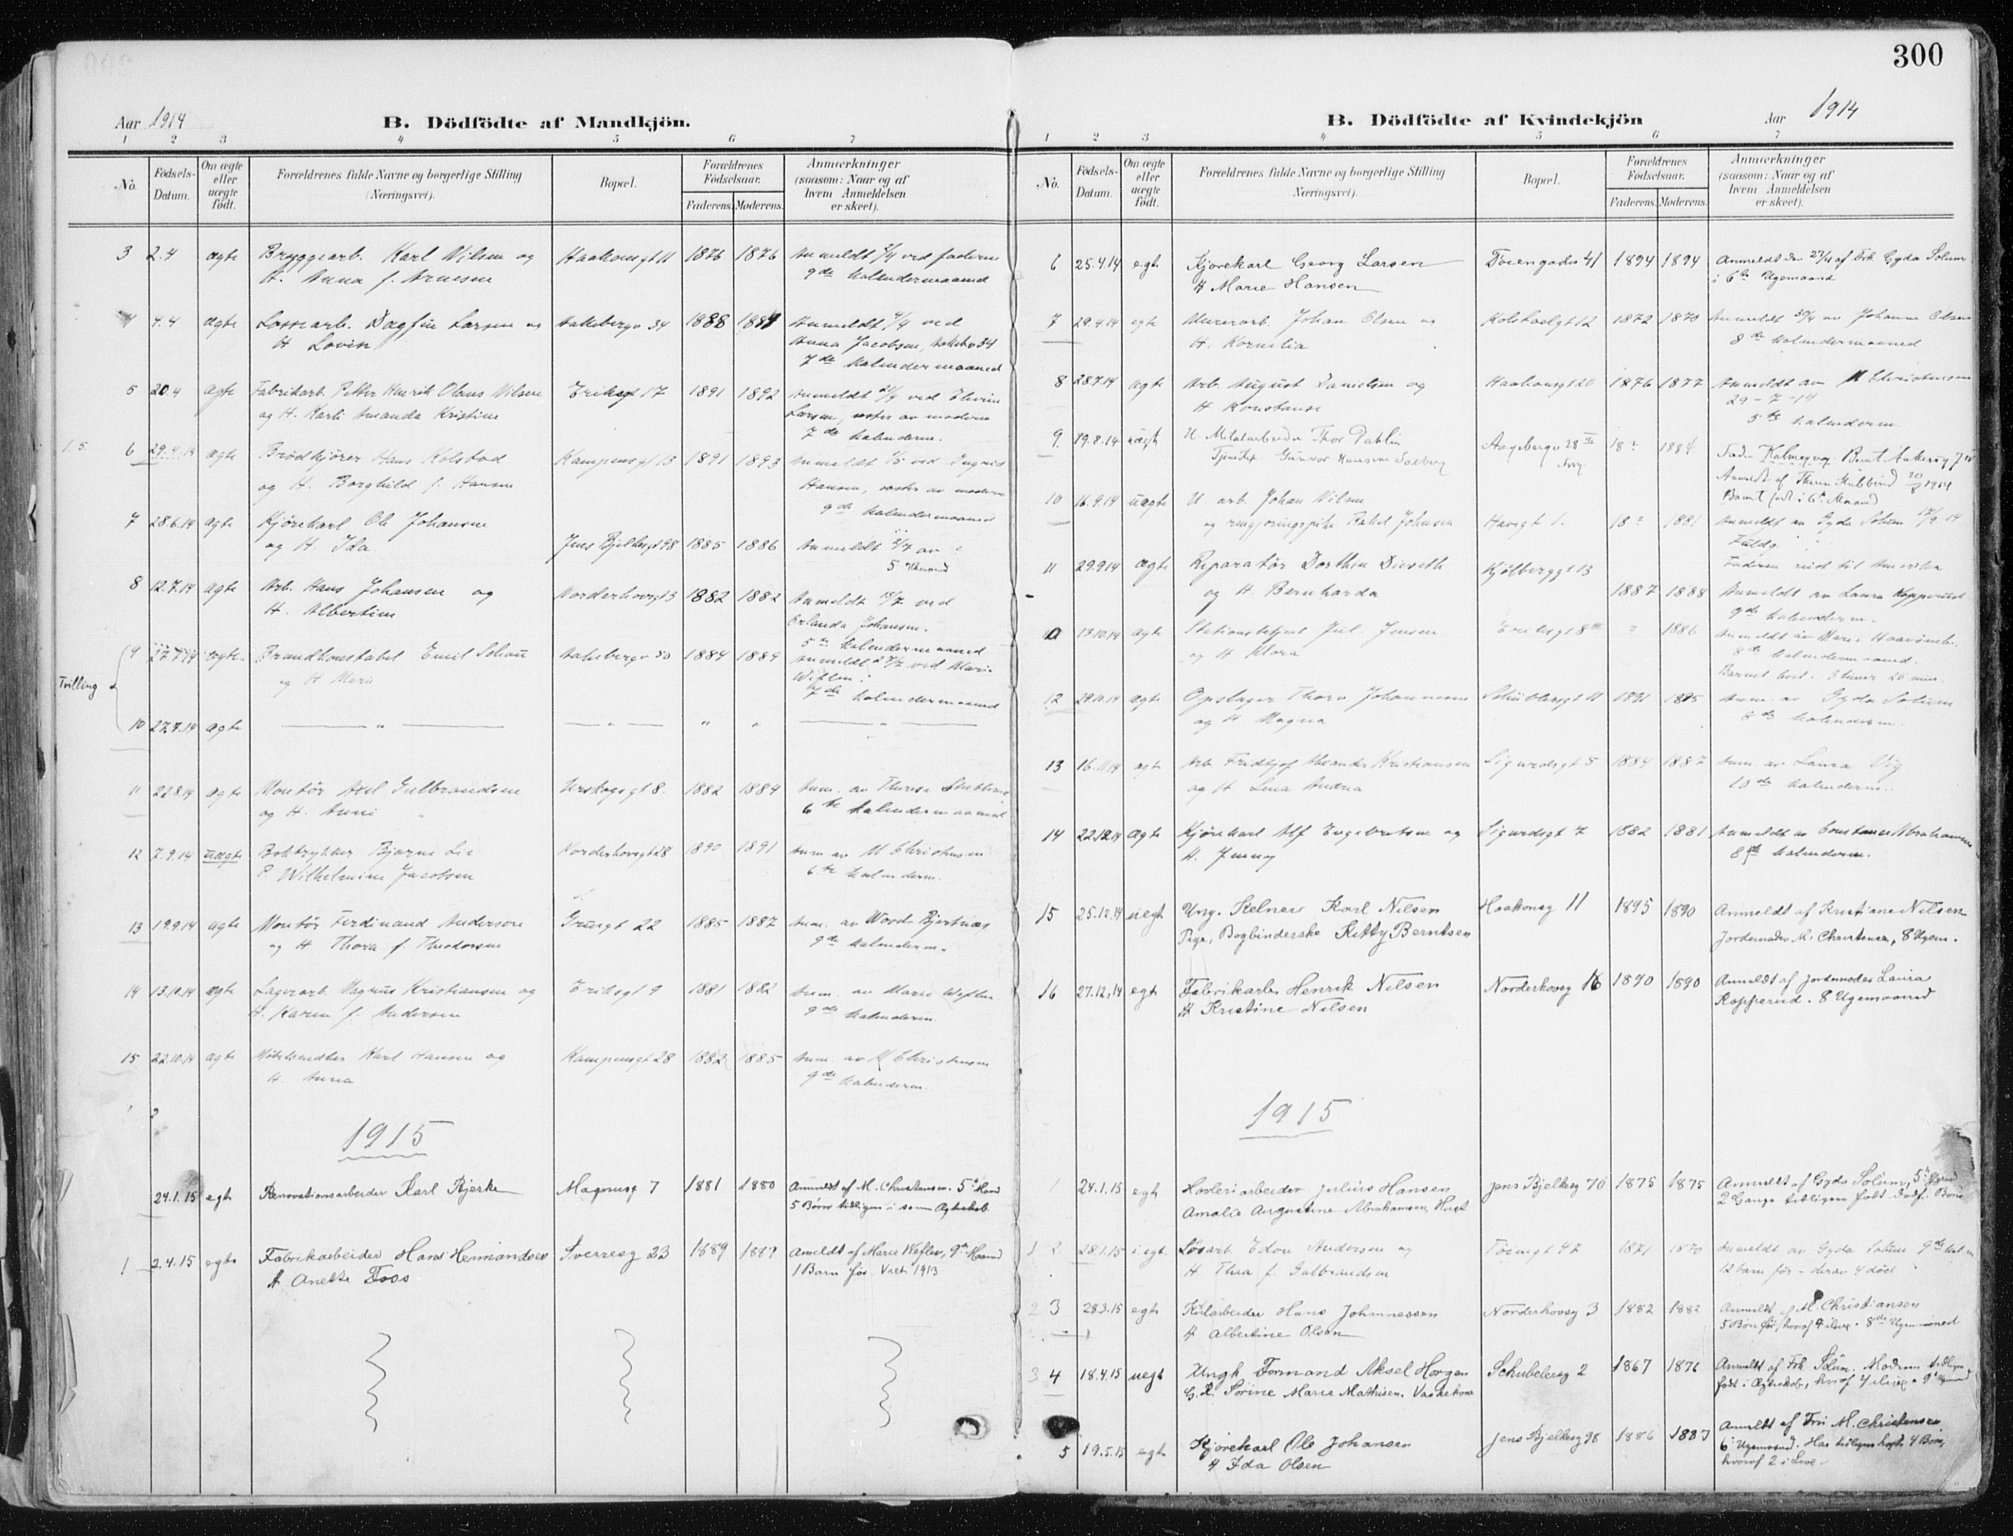 300
Aar 1914
B. Dödfödte af Mandkjön.
1 2 3 4 5 6 7
No.
Födsels-Datum.
Om ægte eller uægte födt.
Forældrenes fulde Navne og borgerlige Stilling
(Næringsvei).
Bopæl.
Forældrenes Födselsaar.
Faderens. Moderens.
Anmærkninger
(saasom: Naar og af
hvem Anmeldelsen
er skeet).
3 2.4 ægte Bryggearb. Karl Nilsen og Haakonsgt 11 1876 1876 Anmeldt ved faderen
H. Anna f. Arnesen 9de kalendermaaned
4 4.4 ægte Lossearb. Dagfin Larsen og Aakebergv 34 1888 Anmeldt ved
H Lovise Anna Jacobsen, Aakebv 34
7de kalendermaaned
5 20.4 ægte Fabrikarb. Petter Henrik Olaus Nilsen Eriksgt 17 1891 1892 Anmeldt ved
og H. Karli Amanda Kristine Larsen, søster av moderen
7de kalenderm.
6 29.4.14 ægte Brödkjører Hans Kolstad Kampensgt 13 1891 1893 Anmeldt ved Ingrid
og H. Borghild f. Hansen Hansen, søster av moderen
9de kalendermaaned
7 28.6.14 ægte Kjørekarl Ole Johansen
og H. Ida Jens Bjelkesgt 98 1885 1886 Anmeldt av
5 Maaned
8 12.7.14 ægte Arb. Hans Johansen og Norderhovsgt 3 1882 1882 Anmeldt ved
H. Albertine Orlanda Johansen.
5te kalendermaaned
Tvilling
9 27.7.14 ægte Brandkonstabel Emil Schau Aakebergv 50 1884 1889 Anmeldt ved Marie
og H Marie Weflen
7de kalendermaaned
10 27.7.14 ægte — " — — " — " " — " —
11 22.8.14 ægte Montør Axel Gulbrandsen Urskogsgt 8 1882 1884 Anm. av Therese
og H. Anni 6te kalendermaaned
12 7.9.14 uægte Boktrykker Bjarne Lie Norderhovsgt 28 1890 1891 Anm av M Christensen
P. Wilhelmine Jacobsen 6te kalenderm.
13 19.9.14 ægte Montør Ferdinand Anderson 22 1885 1887 Anm. av Bjertnæs
og H Thora f. Theodorsen 9de kalenderm.
14 13.10.14 ægte Lagerarb. Magnus Kristiansen og Eriksgt 9 1881 1882 Anm. av Marie Weflen
H. Karen f. Andersen 9de kalenderm.
15 22.10.14 ægte Karl Hansen og Kampensgt 28 1882 1885 Anm. av M Christensen
H. Anna 9de kalenderm.
1915
24.1.15 egte Renovationsarbeider Karl Bjerke Magnusg 7 1881 1880 Anmeldt af M. Christensen. 5te Maaned
5 Børn tidligere i samme Ægteskab
1 2.4.15 egte Fabrikarbeider Hans Hermandsen Sverresg 23 1889 Anmeldt af Marie Weflen, 9de Maaned
H Anette Foss 1 Barn før. Vaet 1913
B. Dödfödte af Kvindekjön
Aar 1914
1 2 3 4 5 6 7
No.
Födsels-Datum.
Om ægte eller uægte födt.
Forældrenes fulde Navne og borgerlige Stilling
Næringsvei).
Bopæl.
Forældrenes Födselsaar.
Faderens. Moderens.
Anmærkninger
(saasom: Naar og af
hvem Anmeldelsen
er skeet).
6 25.4.14 egte Kjørekarl Georg Larsen Tøiengaden 41 1894 1894 Anmeldt den 27/4 af Frk. Gyda Solum
H Marie Hansen i 6te Ugemaaned
7 29.4.14 egte Murerarb. Johan Olsen og Kolstadgt 12 1872 1870 Anmeldt 30/4 av Johanne Olsen
H. Kornelia 8de kalendermaaned
8 28.7.14 ægte Arb August Danielsen og Haakonsgt 20 1876 1877 Anmeldt av M Christensen
H Konstanse 29-7-14
5te kalenderm.
9 19.8.14 uægte U Metalarbeider Thor Dahlin Aagebergv 28 III 18 1884
Tjenestep. Gunvor Hansen Solberg
10 16.9.14 uægte U. arb. Johan Nilsen
og rengjøringspike Rakel Johnsen Havegt 1. 18 1881 Anmeldt av Gyda Solum
Faderen reist til Amerika
11 29.9.14 ægte Reparatør Dorthin Diseth Kjølberggt 13
og H. Bernharda 1887 1888 Anmeldt av Laura Kopperud
9de kalenderm.
13.10.14 ægte Stationsbetjent Juel Jensen Eriksgt 8 III 1886 Anmeldt av Marie
og H Klara 8de kalendermaaned.
Barnet levet i 3 timer 25 min.
12 ægte Opslager Thorv Johannesen Schübelersgt 11 1891 1885 Anm. av Gyda Solum
og H Magna 8de kalenderm.
13 16.11.14 ægte Arb. Fridtjof Alexander Kristiansen Sigurdsgt 5 1884 1887 Anm. av Laura Vig
og H Lina Andrea 10de kalenderm.
14 22.12.14 ægte Kjørekarl Alf Engebretsen og Sigurdsgt 7 1882 1881 Anmeldt av Constance Abrahamsen
H. Jenny 8de kalenderm.
15 25.12.14 uegt Ung. Kelner Karl Nilsen Haakonsg 11 1895 1890 Anmeldt af Kristiane Nilsen
Pige, Bogbinderske Kitty Berntsen Jordemoder M. Christensen, 8 Ugem.
16 27.12.14 egte Fabrikarb Henrik Nilsen Norderhovsg 16 1890 1890 Anmeldt af Jordmoder Laura
H Kristine Nilsen Kopperud. 8 Ugemaaned
1915
1 24.1.15 egte arbeider Julius Hansen Jens Bjelkesg 70 1875 1875 Anmeldt af Gyda Solum, 5te Ugem
Amalie Augustine Abrahamsen, Hust 2 Gange tidligere født dødf. Børn
2 28.1.15 egt. Løsarb. Edon Andersen og Tøiengt 47 1871 1870 Anmeldt av Gyda Solum 9de kal m
H Thea f. Gulbrandsen 12 barn før - derav 4 død
3 28.3.15 egte Kularbeider Hans Johannessen Norderhovsg 3 1882 1882 Anmeldt M. Christiansen
H Albertine Olsen 5 Børn før, hvoraf 4 ilive. 8de Ugemaaned
4 18.4.15 uegt Ungk Formand Aksel Horgen Schubelersg 2 1867 1876 Anmeldt af Frk Solum. Moderen tidligere
Sørine Marie Mathisen. Vaskekone født i Ægteskab, hvoraf 4 ilive. 9de Ugemaaned
5 19.5.15 egte Kjørekarl Ole Johansen Jens Bjelkesg 98 1886 1887 Anmeldt af Fru M. Christensen
H Ida Olsen 6te Ugemaaned. Har tidligere havt 4 Børn,
hvoraf 2 i Live.